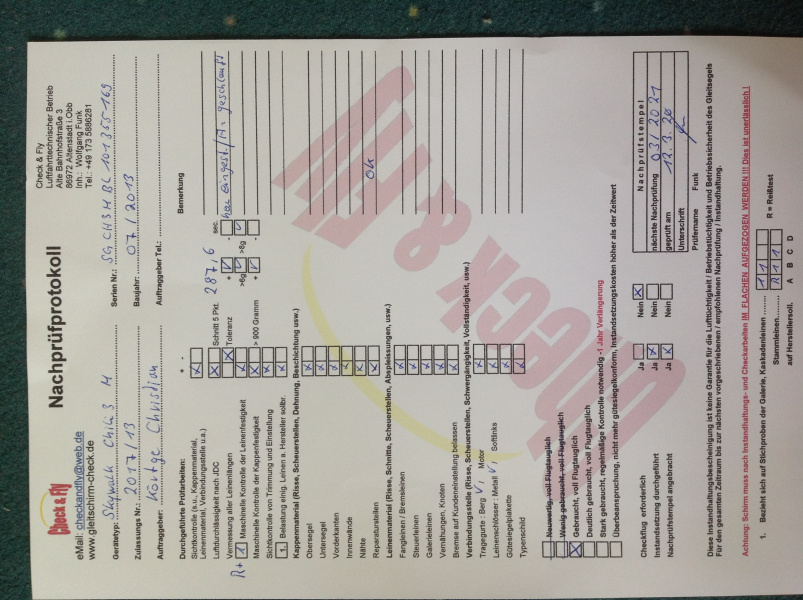 Check & Fly
Nachprüfprotokoll
Check & Fly
Luftfahrttechnischer Betrieb
Alte Bahnhofstraße 3
86972 Altenstadt i.Obb
Inh.: Wolfgang Funk
Tel.: +49 173 5886281
eMail: checkandfly@web.de
www.gleitschirm-check.de
Gerätetyp: Skywalk Chili 3 M
Serien Nr.: SGCH3M BL 101 355 169
Zulassungs Nr.: 2017/13
Baujahr: 07/2013
Auftraggeber: Körtge Christian
Auftraggeber Tel.:
Durchgeführte Prüfarbeiten:
+ -
Bemerkung
Sichtkontrolle (s.u., Kappenmaterial,
Leinenmaterial, Verbindungsteile u.a.)
x
Luftdurchlässigkeit nach JDC
x Schnitt 5 Pkt. 287,6 sec.
Vermessung aller Leinenlängen
x Toleranz + v - neu eingest/
R+ 1 Maschinelle Kontrolle der Leinenfestigkeit
x >6g v >8g v
Maschinelle Kontrolle der Kappenfestigkeit
x > 900 Gramm + v -
Sichtkontrolle von Trimmung und Einstellung
x
1. Belastung einlg. Leinen a. Hersteller sollbr.
x
Kappenmaterial (Risse, Scheuerstellen, Dehnung, Beschichtung usw.)
Obersegel x
Untersegel x
Vorderkanten x
Innenwände x
Nähte x
Reparaturstellen x ok
Leinenmaterial (Risse, Schnitte, Scheuerstellen, Abspleissungen, usw.)
Fangleinen / Bremsleinen x
Steuerleinen x
Galerieleinen x
Vernähungen, Knoten x
Bremse auf Kundeneinstellung belassen x
Verbindungsteile (Risse, Scheuerstellen, Schwergängigkeit, Vollständigkeit, usw.)
Tragegurte : Berg v, Motor x
Leinenschlösser : Metall v, Softlinks x
Gütesiegelplakette x
Typenschild x
Neuwertig, voll Flugtauglich
Wenig gebraucht, voll Flugtauglich
x Gebraucht, voll Flugtauglich
Deutlich gebraucht, voll Flugtauglich
Stark gebraucht, regelmäßige Kontrolle notwendig -1 Jahr Verlängerung
Überbeanspruchung, nicht mehr gütesiegelkonform, Instandsetzungskosten höher als der Zeitwert
Checkflug erforderlich Ja Nein x
Instandsetzung durchgeführt Ja x Nein
Nachprüfstempel angebracht Ja x Nein
Nachprüfstempel
nächste Nachprüfung 03/2021
geprüft am 12.3.20
Unterschrift
Prüfername Funk
Diese Instandhaltungsbescheinigung ist keine Garantie für die Lufttüchtigkeit / Betriebstüchtigkeit und Betriebssicherheit des Gleitsegels
Für den gesamten Zeitraum bis zur nächsten vorgeschriebenen / empfohlenen Nachprüfung / Instandhaltung.
Achtung: Schirm muss nach Instandhaltungs- und Checkarbeiten IM FLACHEN AUFGEZOGEN WERDEN !!! Dies ist unerlässlich !
1. Bezieht sich auf Stichproben der Galerie, Kaskadenleinen 1 1
Stammleinen R 1 1 R = Reißtest
auf Herstellersoll. A B C D